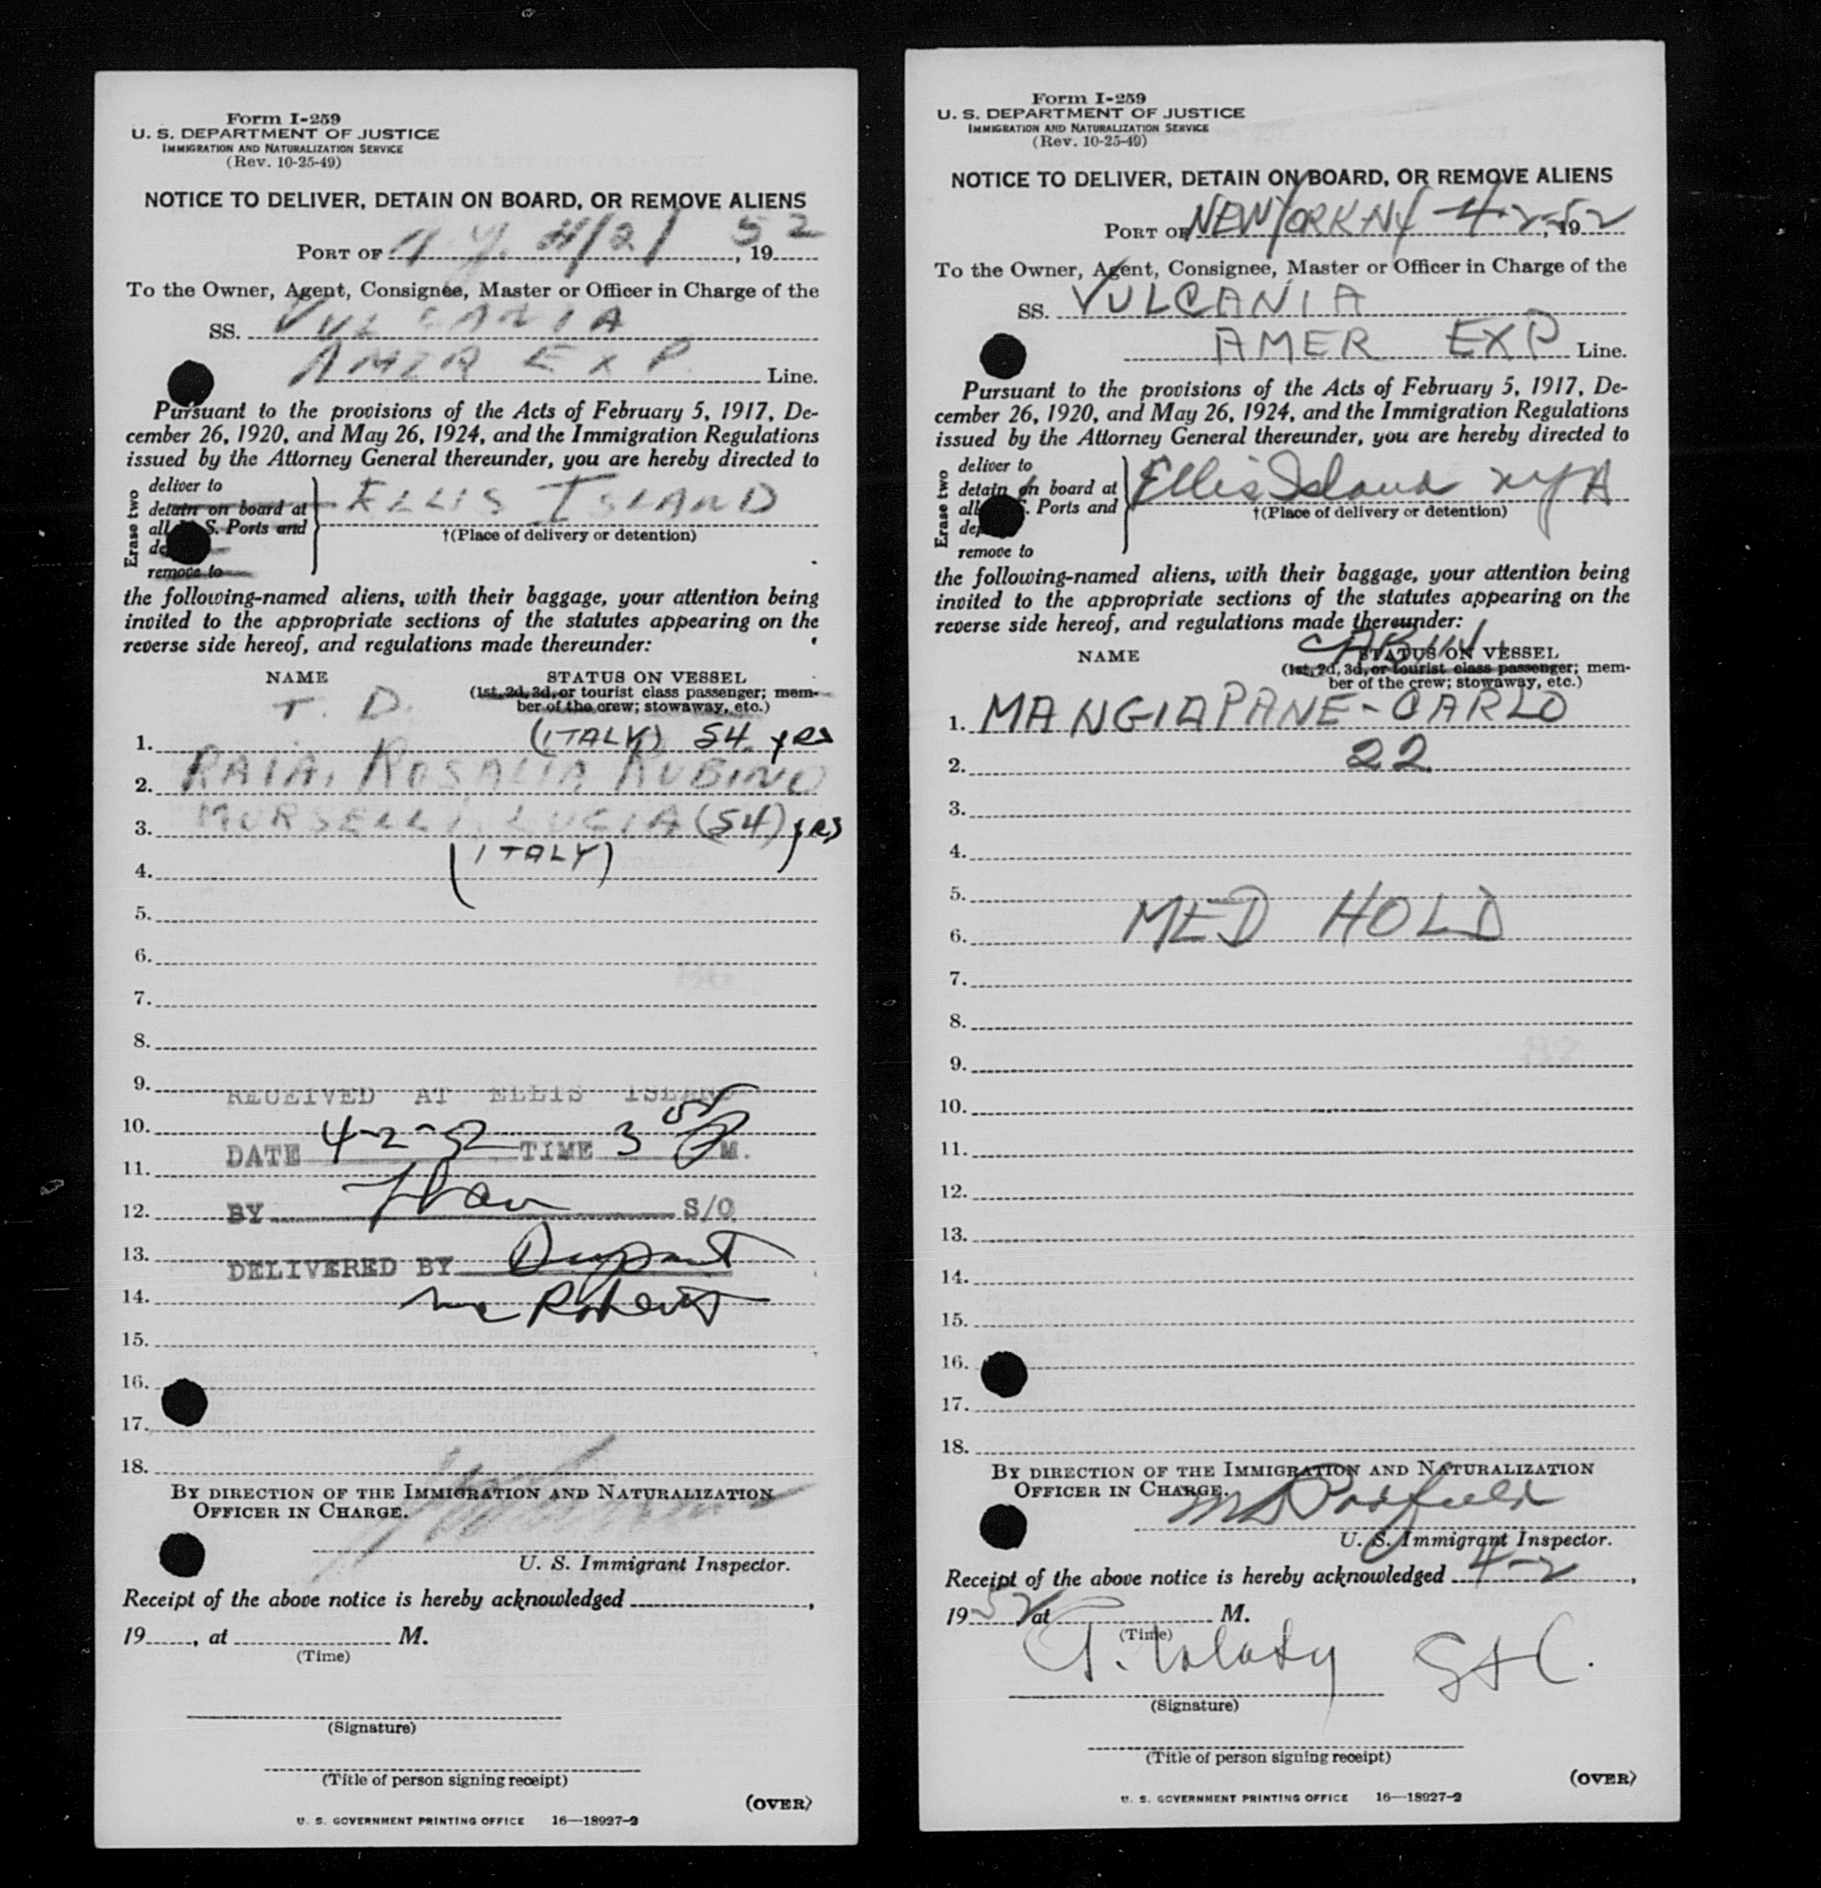 Form I-259
U. S. DEPARTMENT OF JUSTICE
IMMIGRATION AND NATURALIZATION SERVICE
(Rev. 10-25-49)
NOTICE TO DELIVER, DETAIN ON BOARD, OR REMOVE ALIENS
PORT OF N.Y. 4/2/, 1952
To the Owner, Agent, Consignee, Master or Officer in Charge of the
SS. VULCANIA
AMER EXP. Line.
Pursuant to the provisions of the Acts of February 5, 1917, De-
cember 26, 1920, and May 26, 1924, and the Immigration Regulations
issued by the Attorney General thereunder, you are hereby directed to
Erase two
deliver to
detain on board at
all S. Ports and
remove to
ELLIS ISLAND
†(Place of delivery or detention)
the following-named aliens, with their baggage, your attention being
invited to the appropriate sections of the statutes appearing on the
reverse side hereof, and regulations made thereunder:
NAME
STATUS ON VESSEL
(1st, 2d, 3d, or tourist class passenger; mem-
ber of the crew; stowaway, etc.)
T. D.
1. (ITALY) 54 yRS
2. RAIA, ROSALIA RUBINO
3. MORSELLI, LUCIA (54) yRS
4. (ITALY)
5.
6.
7.
8.
9.
RECEIVED AT ELLIS ISLAND
10.
DATE 4-2-52 TIME 3 M.
11.
12.
BY S/O
13.
DELIVERED BY
14.
15.
16.
17.
18.
BY DIRECTION OF THE IMMIGRATION AND NATURALIZATION
OFFICER IN CHARGE.
U. S. Immigrant Inspector.
Receipt of the above notice is hereby acknowledged ,
19 , at M.
(Time)
(Signature)
(Title of person signing receipt)
(OVER)
U. S. GOVERNMENT PRINTING OFFICE 16—18927-2
Form I-259
U. S. DEPARTMENT OF JUSTICE
IMMIGRATION AND NATURALIZATION SERVICE
(Rev. 10-25-49)
NOTICE TO DELIVER, DETAIN ON BOARD, OR REMOVE ALIENS
PORT OF NEW YORK NY 4-2-52, 19
To the Owner, Agent, Consignee, Master or Officer in Charge of the
SS. VULCANIA
AMER EXP Line.
Pursuant to the provisions of the Acts of February 5, 1917, De-
cember 26, 1920, and May 26, 1924, and the Immigration Regulations
issued by the Attorney General thereunder, you are hereby directed to
Erase two
deliver to
detain on board at
all Ports and
remove to
Ellis Island NYA
†(Place of delivery or detention)
the following-named aliens, with their baggage, your attention being
invited to the appropriate sections of the statutes appearing on the
reverse side hereof, and regulations made thereunder:
CABIN
NAME
STATUS ON VESSEL
(1st, 2d, 3d, or tourist class passenger; mem-
ber of the crew; stowaway, etc.)
1. MANGIAPANE - CARLO
2. 22
3.
4.
5.
6. MED HOLD
7.
8.
9.
10.
11.
12.
13.
14.
15.
16.
17.
18.
BY DIRECTION OF THE IMMIGRATION AND NATURALIZATION
OFFICER IN CHARGE.
U. S. Immigrant Inspector.
Receipt of the above notice is hereby acknowledged 4-2,
1952, at M.
(Time)
(Signature)
(Title of person signing receipt)
(OVER)
U. S. GOVERNMENT PRINTING OFFICE 16—18927-2